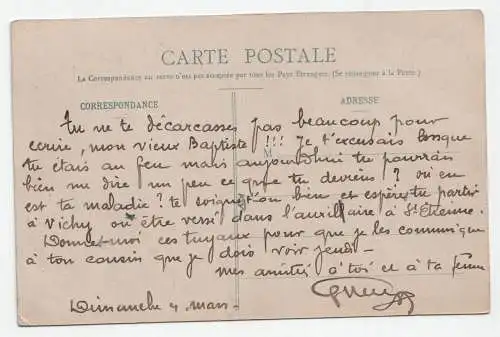 CARTE POSTALE
La Correspondance au recto n'est pas acceptée par tous les Pays Etrangers. (Se renseigner à la Poste.)
CORRESPONDANCE
ADRESSE
Tu ne te décarcasses pas beaucoup pour
écrire, mon vieux Baptiste !!! Je t'excusais lorsque
M
tu étais au feu mais aujourd'hui tu pourrais
bien me dire un peu ce que tu deviens ? où en
est ta maladie ? te soigne-t-on bien et espères-tu partir
à Vichy ou être versé dans l'auxillaire à St Etienne.
Donnes-moi ces tuyaux pour que je les communique
à ton cousin que je dois voir jeudi -
mes amitiés à toi et à ta femme
Dimanche 4 mars -